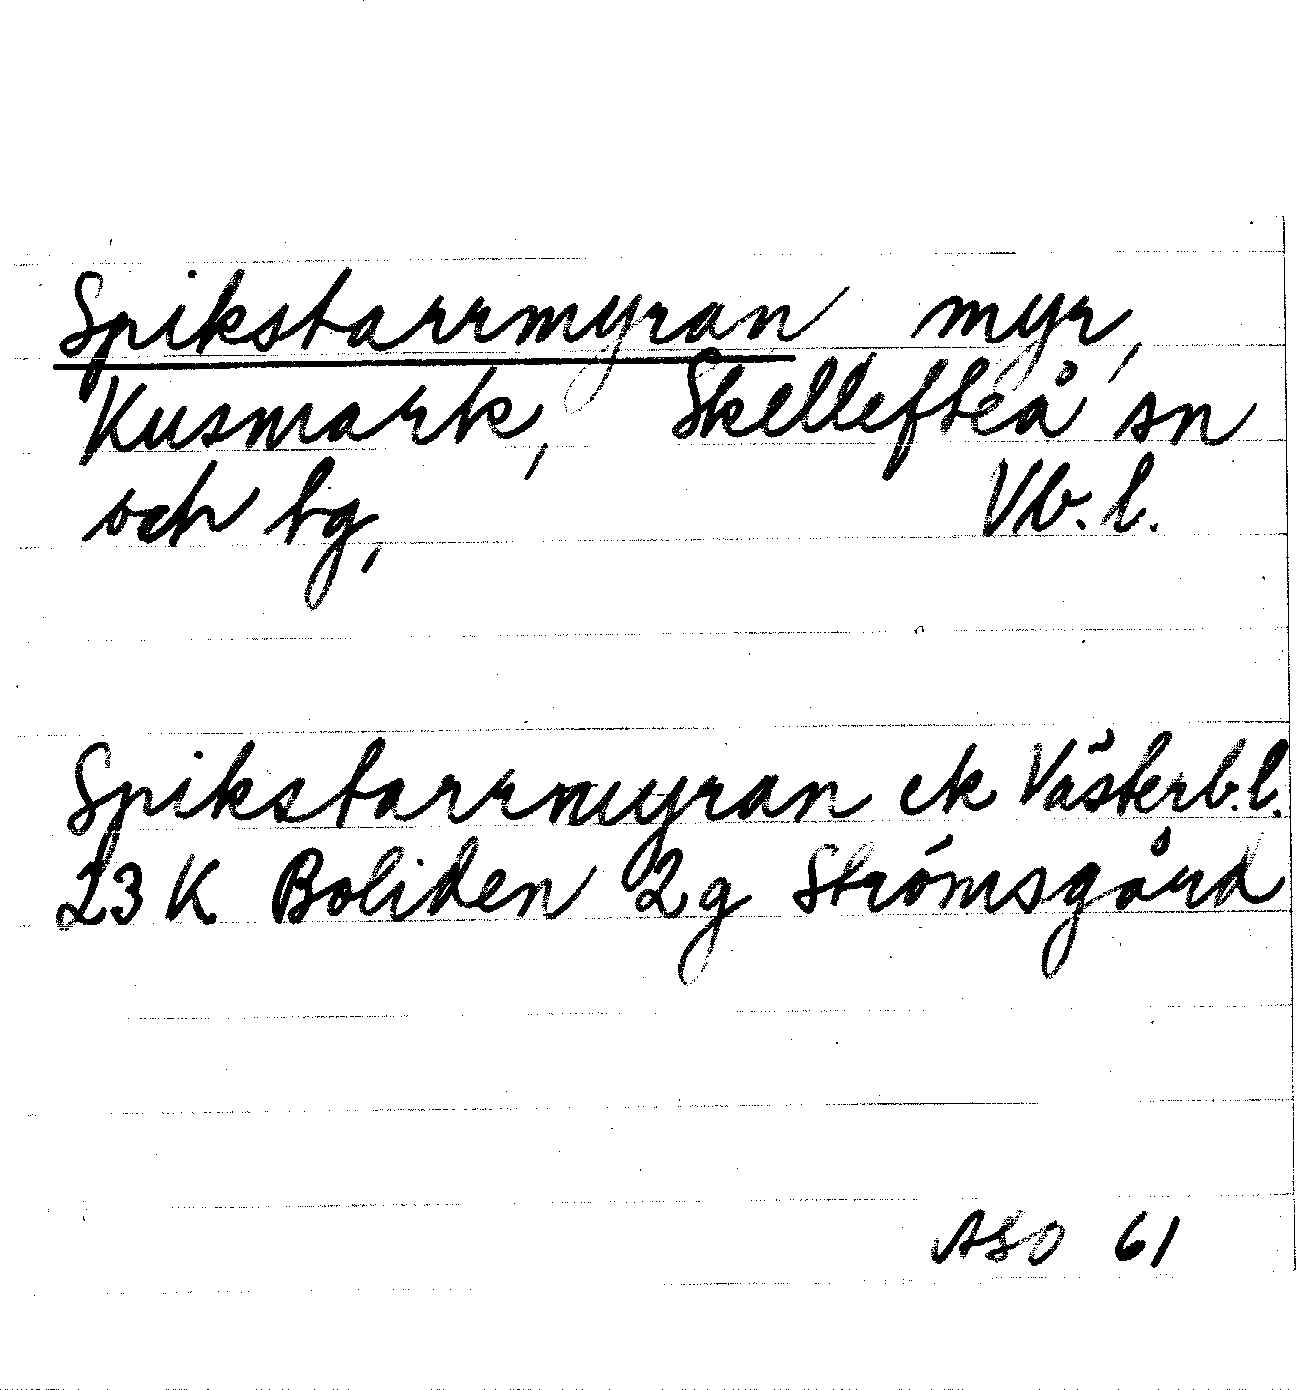 Spikstarrmyran myr,
Kusmark, Skellefteå sn
och tg, Vb. l.
Spikstarrmyran ek Västerb. l.
23 K Boliden 2g Strömsgård
ASO 61